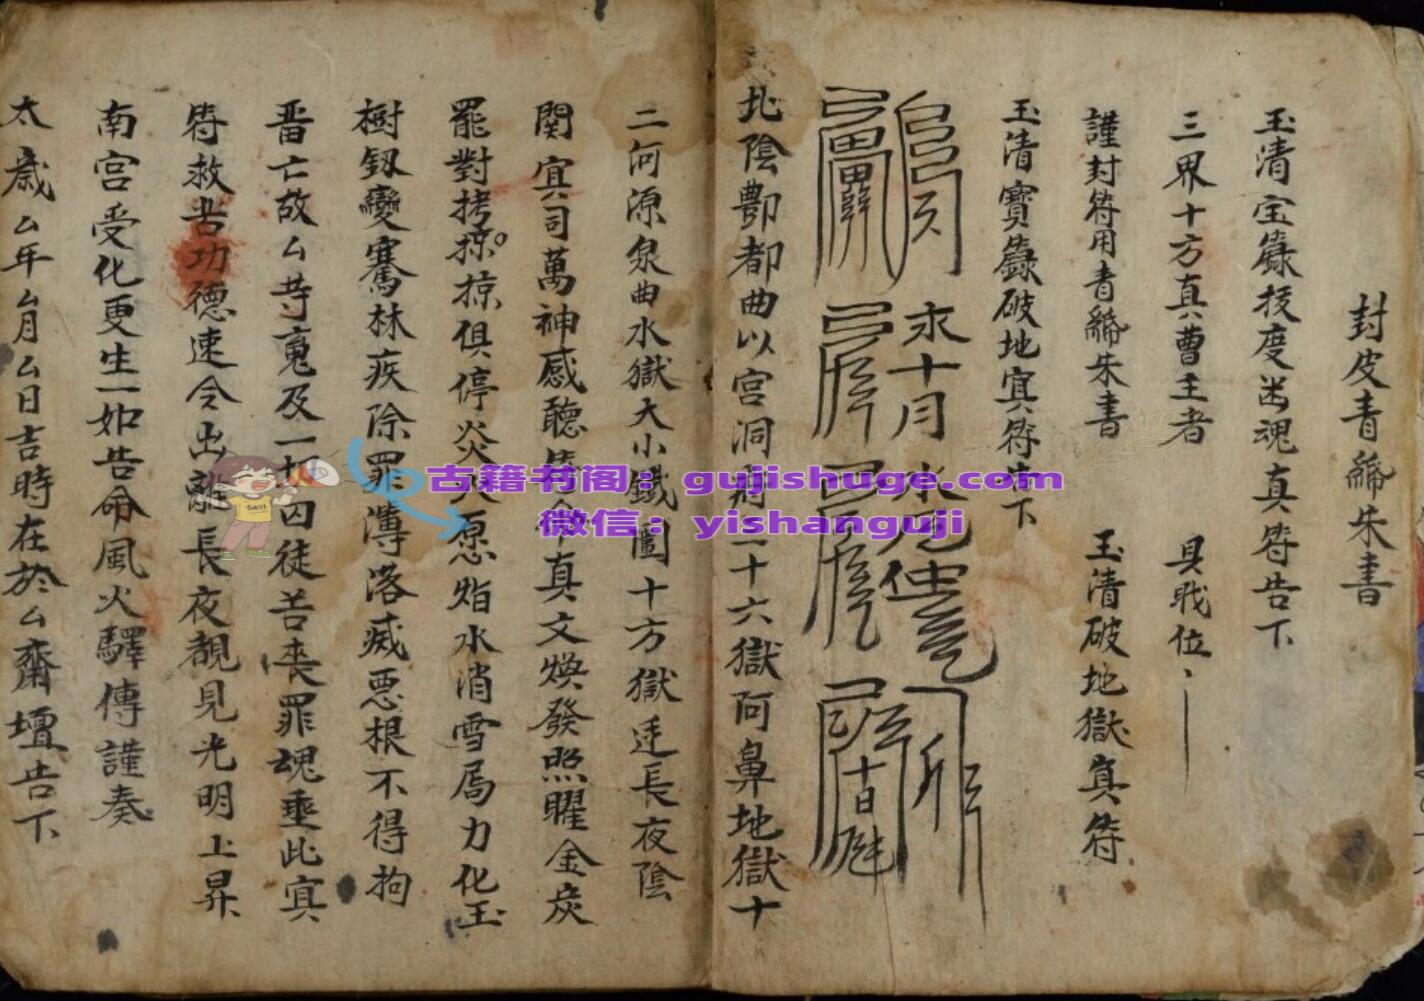 封皮青䋲朱書
玉清宝籙拔度幽魂真符告下
三界十方真曹主者 具戝位
謹封符用青䋲朱書 玉清破地獄真符
玉清寶籙破地冥符告下
北陰酆都曲以宫洞府二十六獄阿鼻地獄十
二河源泉曲水獄大小鐵圍十方獄迋長夜陰
関冥司萬神感聽 真文煥發照曜金炭
罷對拷掠。掠俱停炎火 水消雪局力化玉
樹釼 騫林疾除罪薄落滅惡根不得拘
晋亡故厶等䰟及一切囚徒苦丧罪魂垂此冥
符救苦功德速令出離長夜覩見光明上昇
南宫受化更生一如告命風火驛傳謹奏
太歳厶年厶月厶日吉時在於厶齋壇告下
古籍书阁：gujishuge.com
微信：yishanguji